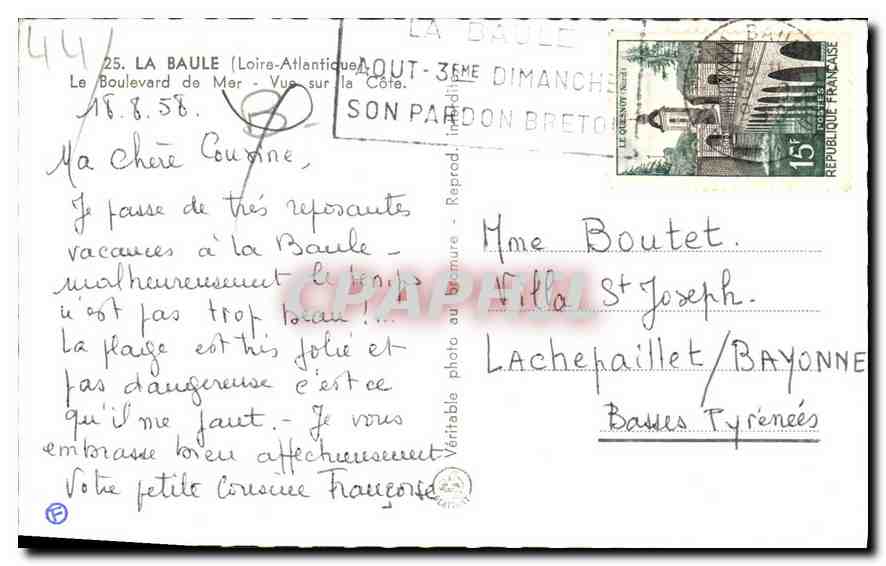 44
25. LA BAULE (Loire-Atlantique)
Le Boulevard de Mer - Vue sur la Côte.
18.8.58.
B
Ma Chère Cousine,
Je passe de très reposantes
vacances à la Baule -
malheureusement le temps
n'est pas trop beau!...
La plage est très jolie et
pas dangereuse c'est ce
qu'il me faut. - Je vous
embrasse bien affectueusement
Votre petite Cousine Françoise
F
Véritable photo au bromure - Reprod. interdite
LA BAULE
AOUT - 3EME DIMANCHE
SON PARDON BRETON
LE QUESNOY (Nord)
15F
POSTES
REPUBLIQUE FRANÇAISE
Mme Boutet.
Villa St Joseph.
LACHEPAILLET/BAYONNE
Basses Pyrénées
CPAPHIL